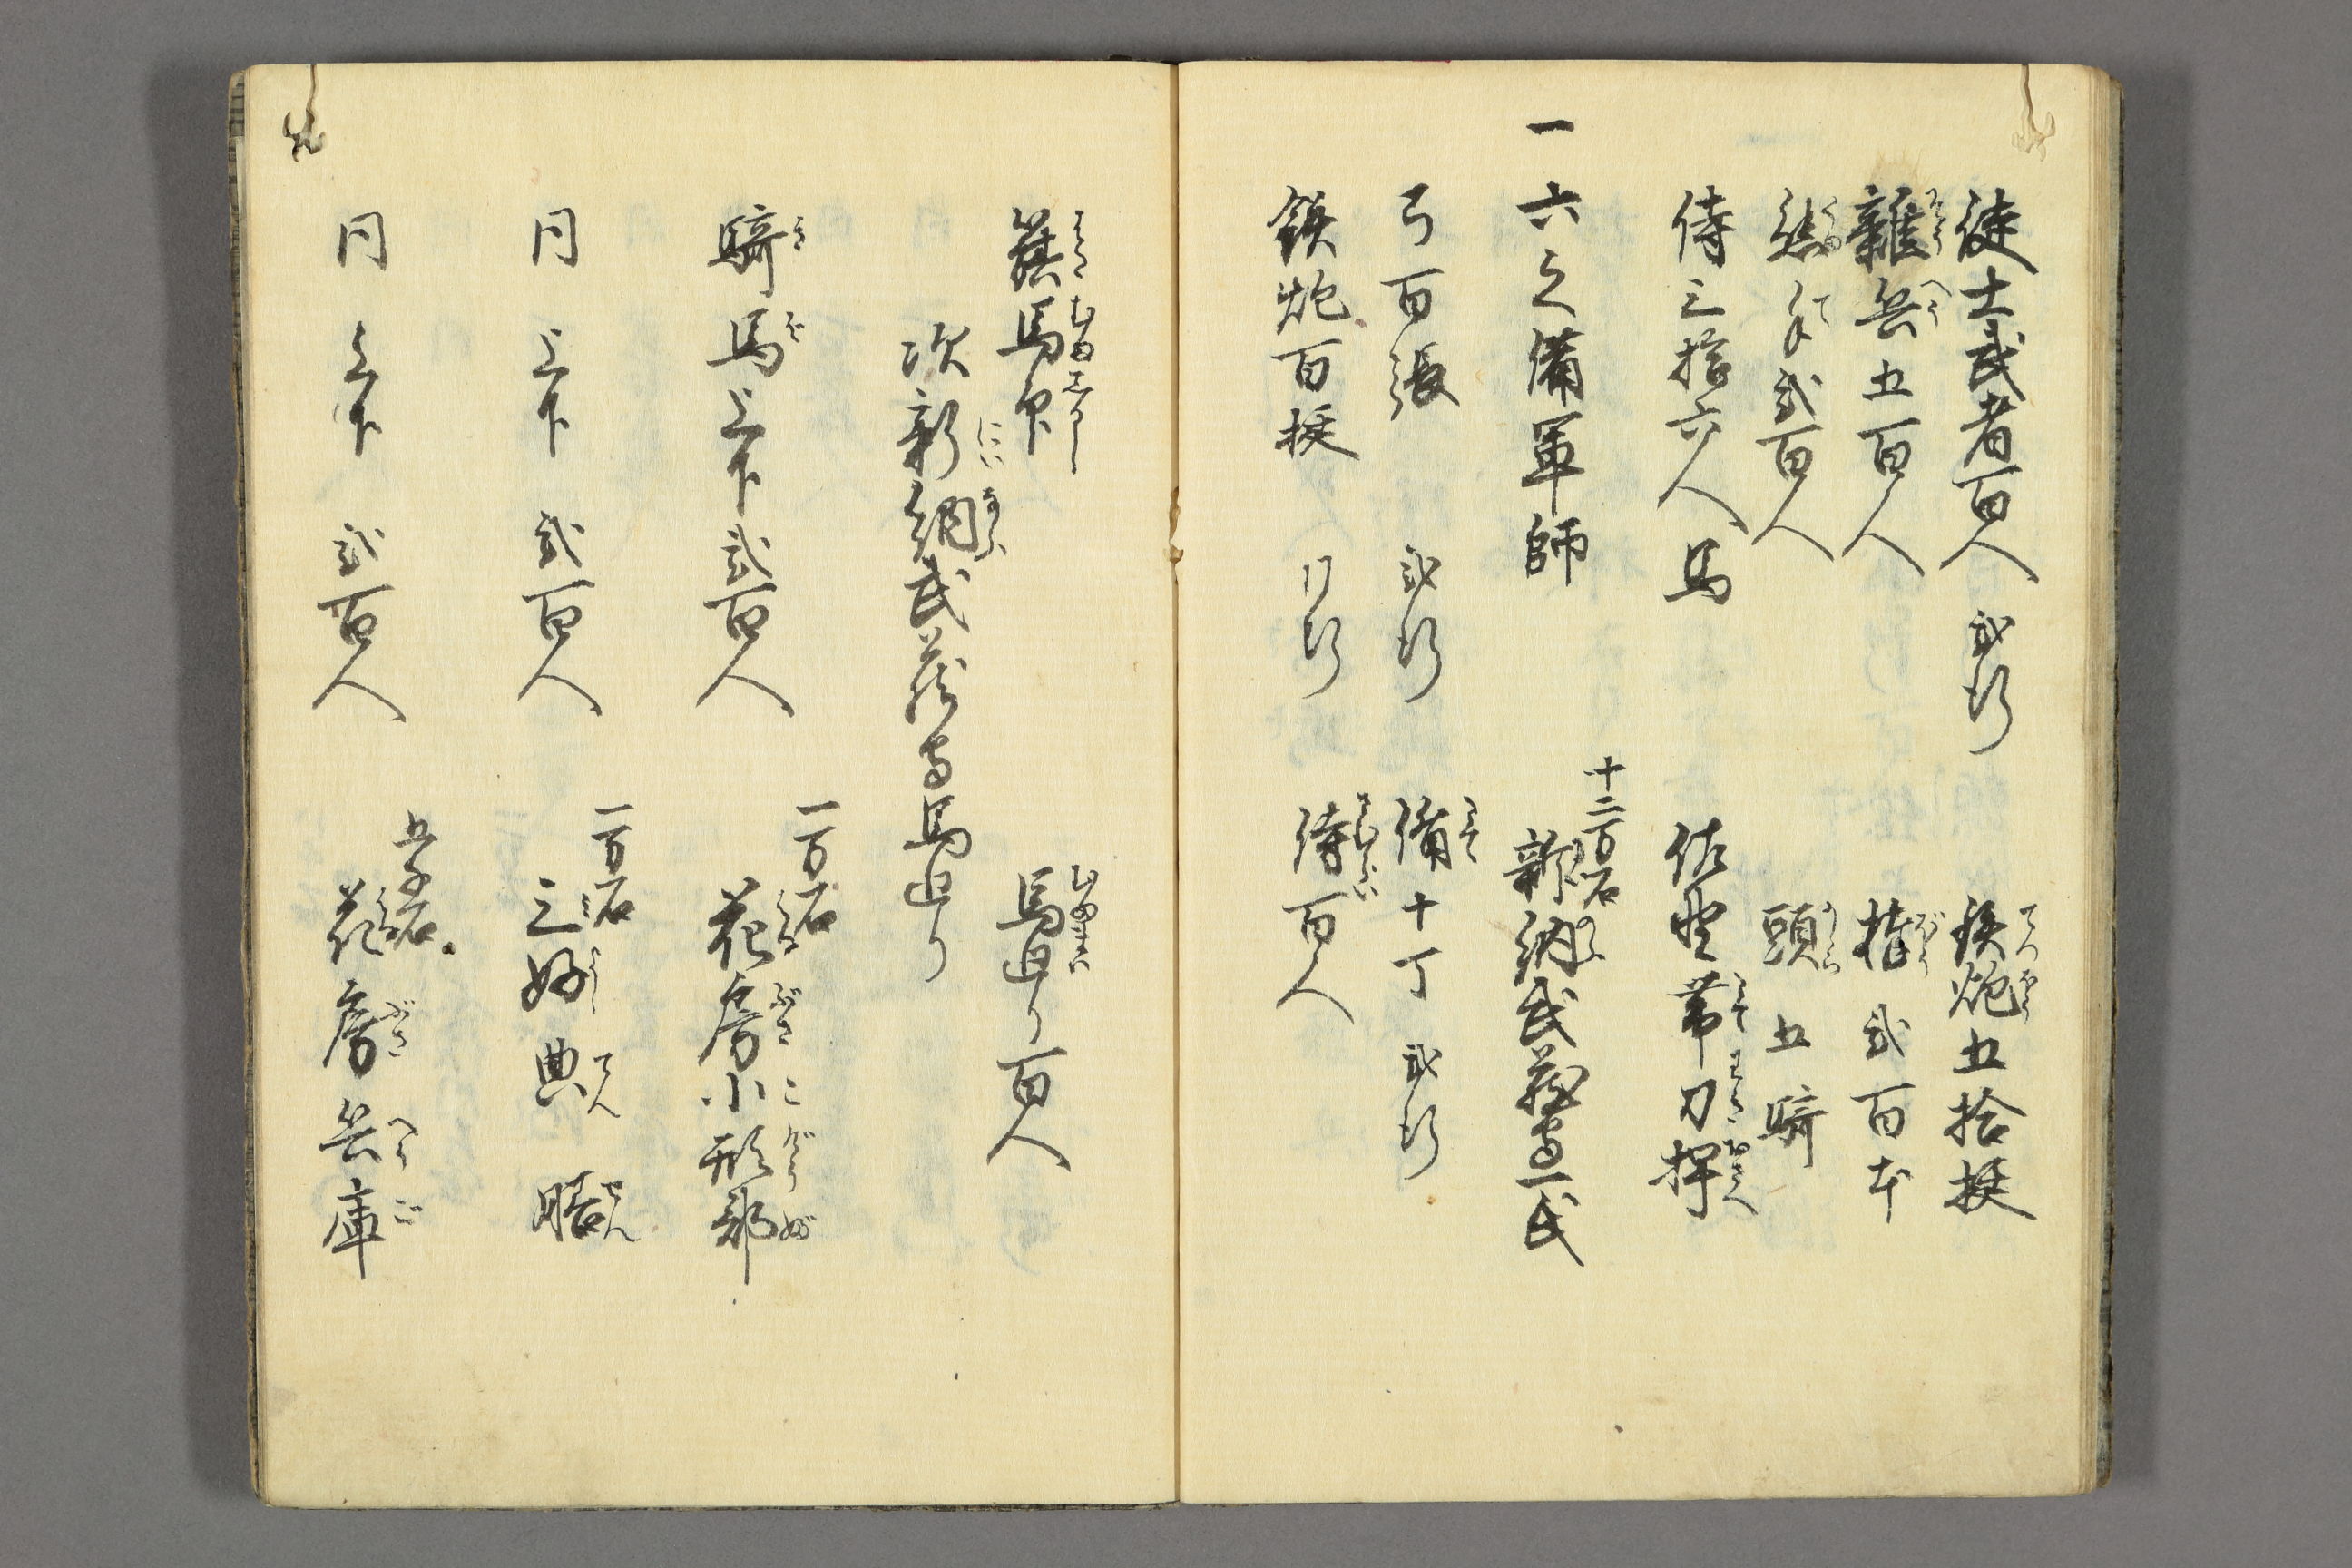 徒士武者百人 弐行 鉄炮五拾挺
雑兵五百人 弐百本
弐百人 頭五騎
侍三拾六人 馬 佐野帯刀
一 六之備軍師 十二万石 新納武蔵守一氏
弓百張 弐行 備十丁 弐行
鉄炮百挺 行 侍百人
籏馬印 馬廻り百人
次新納武蔵守馬廻り
騎馬上下弐百人 一万石 花房小形部
同 上下 弐百人 一万石 三好典膳
同 上下 弐百人 五千石 花房兵庫